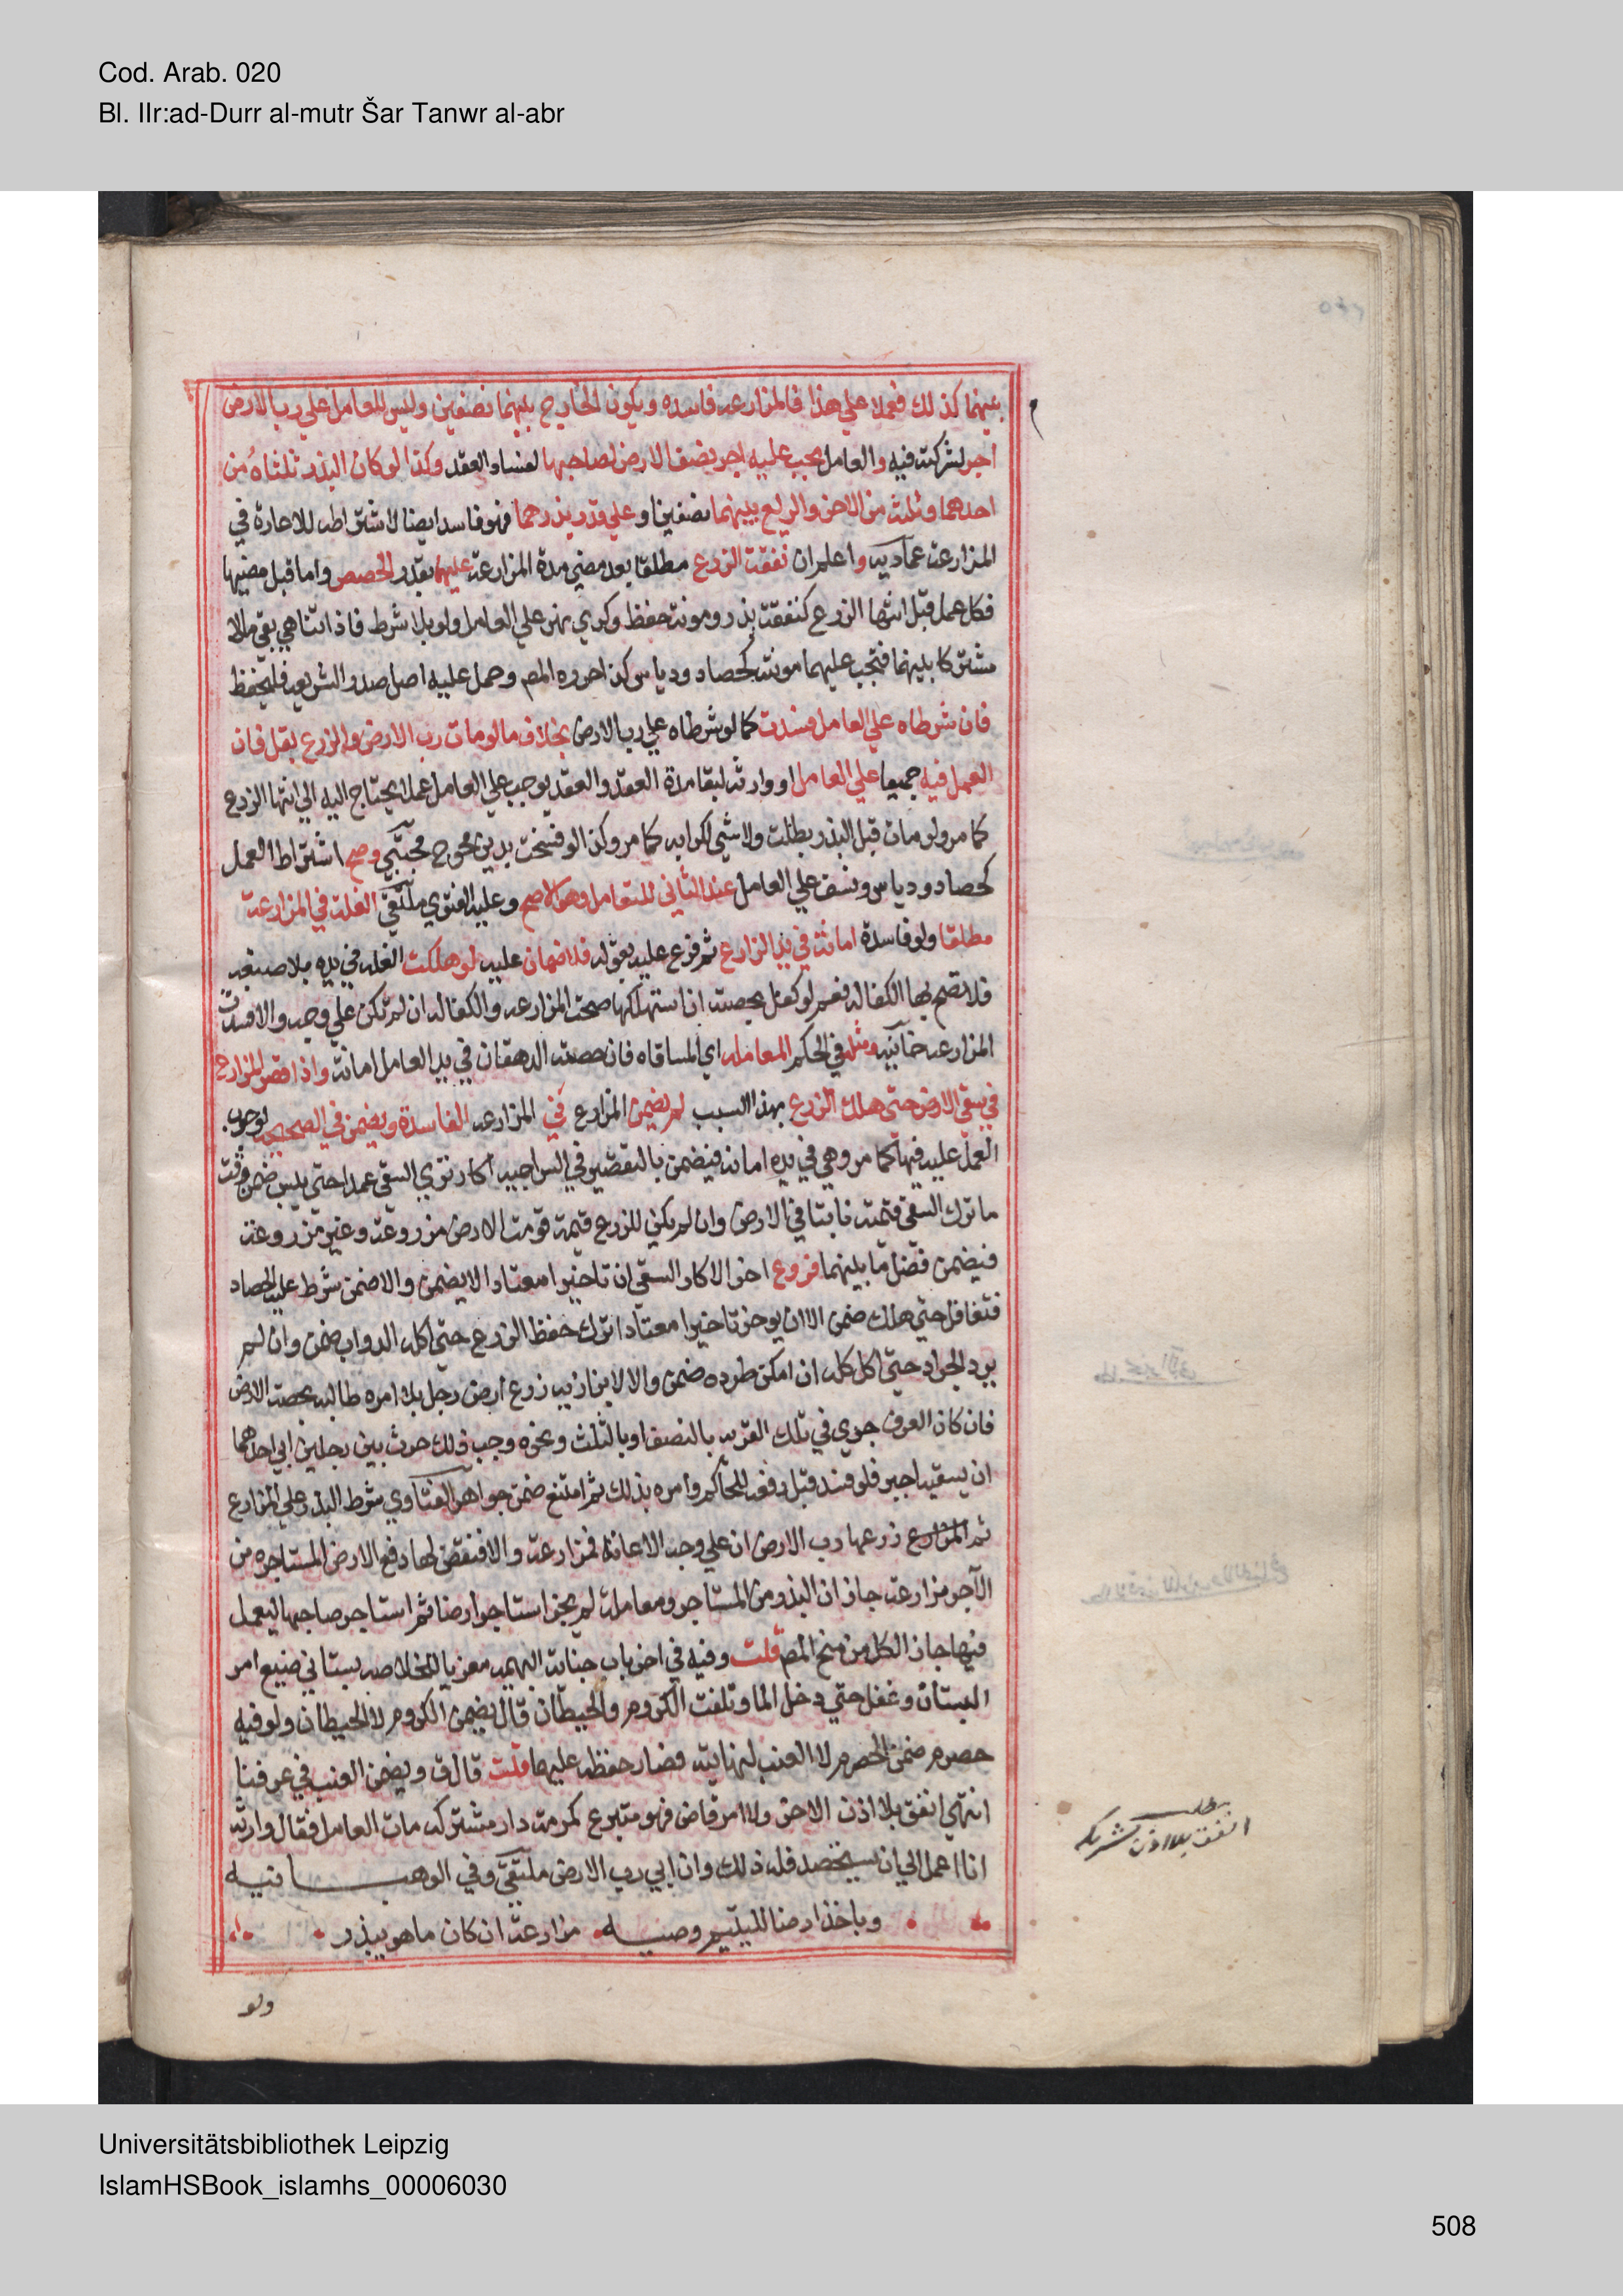 Cod. Arab. 020
Bl. IIr:ad-Durr al-mutr Šar Tanwr al-abr
بينهما كذلك فعملا علي هذا فالمزارعه فاسده ويكون الخارج بينهما نصفين وليس للعامل علي رب الارض
اجر لشركته فيه والعامل يجب عليه اجر نصف الارض لصاحبها لفساد العقد وكذا لو كان البذر ثلثاه من
احدهما وثلثه من الاخر والريع بينهما نصفين او علي قدر بذرهما فهو فاسد ايضا لاشتراطه للاعارة في
المزارعة عماديه واعلم ان نفقة الزرع مطلقا بعد مضي مدة المزارعة عليهما بقدر الحصص واما قبل مضيها
فكل عمل قبل انتها الزرع كنفقة بذر ومونة حفظ وكري نهر علي العامل ولو بلا شرط فاذا تناهي بقي مالا
مشتركا بينهما فتجب عليهما مونته كحصاد ودياس كذا حرره المص وحمل عليه اصل صدر الشريعه فليحفظ
فان شرطاه علي العامل فسدت كما لو شرطاه علي رب الارض بخلاف ما لو مات رب الارض والزرع بقل فان
العمل فيه جميعا علي العامل او وارثه لبقا مدة العقد والعقد يوجب علي العامل عملا يحتاج اليه الي انتها الزرع
كما مر ولو مات قبل البذر بطلت ولا شي لكرابه كما مر وكذا لو فسخت بدين محوج مجتبي وصح اشتراط العمل
كحصاد ودياس ونسف علي العامل عند الثاني للتعامل وهو الاصح وعليه الفتوي ملتقي الغلة في المزارعة
مطلقا ولو فاسدة امانة في يد الزارع ثم فرع عليه بقوله فلا ضمان عليه لو هلكت الغله في يده بلا صنعه
فلا تصح بها الكفاله نعم لو كفل بحصته ان استهلكها صحت المزارعه والكفاله ان لم تكن علي وجه والا فسدت
المزارعه خانيه ومثله في الحكم المعامله اي المساقاه فان حصة الدهقان في يد العامل امانة واذا قصر المزارع
في سقي الارض حتي هلك الزرع بهذا السبب لم يضمن المزارع في المزارعه الفاسدة ويضمن في الصحيحه لوجوب
العمل عليه فيها كما مر وهي في يده امانة فيضمن بالتقصير في السراجيه اكار ترك السقي عمدا حتي يبس ضمن وقت
ما ترك السقي قيمته نابتا في الارض وان لم يكن للزرع قيمة قومت الارض مزروعة وغير مزروعة
فيضمن فضل ما بينهما فروع اخر الاكار السقي ان تاخيرا معتادا لا يضمن والا ضمن شرط عليه الحصاد
فتغافل حتي هلك ضمن الا ان يوخر تاخيرا معتادا ترك حفظ الزرع حتي اكله الدواب ضمن وان لم
يرد الجراد حتي اكل كله ان امكن طرده ضمن والا لا بزازيه زرع ارض رجل بلا امره طالبه بحصة الارض
فان كان العرف جري في تلك القريه بالنصف او بالثلث ونحوه وجب ذلك حرث بين رجلين ابي احدهما
ان يسقيه اجبر فلو فسد قبل رفعه للحاكم وامره بذلك ثم امتنع ضمن جواهر الفتاوي شرط البذر علي المزارع
ثم المزارع زرعها رب الارض ان علي وجه الاعانة فمزارعة والا فنقض لها دفع الارض المستاجره من
الآجر مزارعة جاز ان البذر من المستاجر ومعاملة لم يجز استاجر ارضا ثم استاجر صاحبها ليعمل
فيها جاز الكل من منح المص قلت وفيه في اخر باب جناية البهيمه معزيا للخلاصه بستاني ضيع امر
البستان وغفل حتي دخل الما وتلفت الكروم والحيطان قال يضمن الكروم لا الحيطان ولو فيه
حصرم ضمن الحصرم لا العنب لنهايته فصار حفظه عليهما قلت قال ق ويضمن العنب في عرفنا
انتهي انفق بلا اذن الاخر ولا امر قاض فهو متبرع كمرمة دار مشتركه مات العامل فقال وارثه
انا اعمل الي ان يستحصد فله ذلك وان ابي رب الارض ملتقي وفي الوهبانيه
وياخذ ارضا لليتيم وصيه مزارعة ان كان ما هو يبذر
ولو
مطلب
انفق بلا اذن شريكه
Universitätsbibliothek Leipzig
IslamHSBook_islamhs_00006030
508